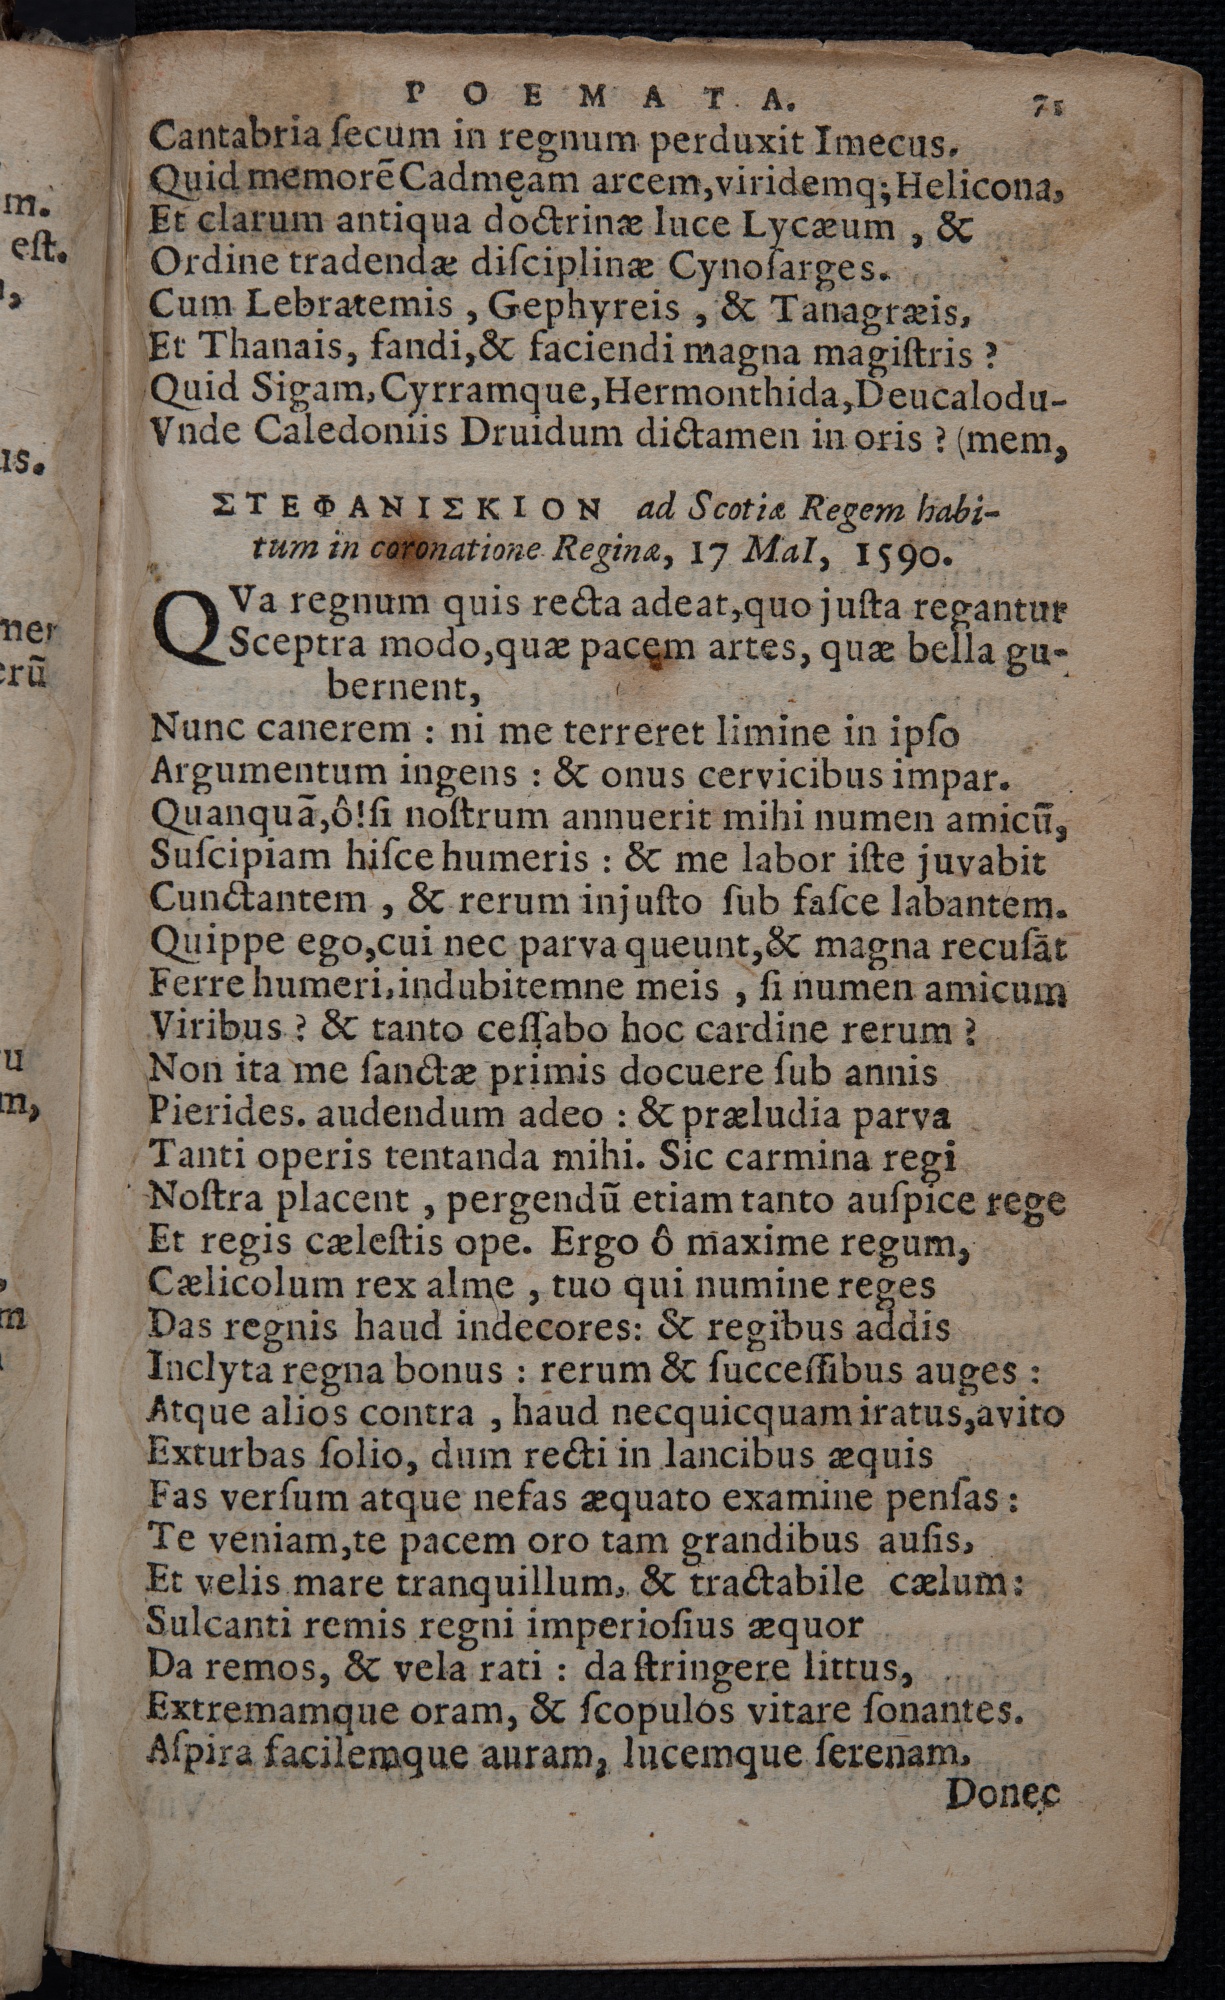 POEMATA. 71
Cantabria ſecum in regnum perduxit Imecus.
Quid memorẽ Cadmęam arcem, viridemq; Helicona,
Et clarum antiqua doctrinæ luce Lycæum, &
Ordine tradendæ diſciplinæ Cynoſarges.
Cum Lebratemis, Gephyreis, & Tanagræis,
Et Thanais, fandi, & faciendi magna magiſtris?
Quid Sigam, Cyrramque, Hermonthida, Deucalodu-
Vnde Caledoniis Druidum dictamen in oris? (mem,
ΣΤΕΦΑΝΙΣΚΙΟΝ ad Scotiæ Regem habi-
tum in coronatione Reginæ, 17 MaI, 1590.
QVa regnum quis recta adeat, quo juſta regantur
Sceptra modo, quæ pacem artes, quæ bella gu-
bernent,
Nunc canerem: ni me terreret limine in ipſo
Argumentum ingens: & onus cervicibus impar.
Quanquã, ô! ſi noſtrum annuerit mihi numen amicũ,
Suſcipiam hiſce humeris: & me labor iſte juvabit
Cunctantem, & rerum injuſto ſub faſce labantem.
Quippe ego, cui nec parva queunt, & magna recuſãt
Ferre humeri, indubitemne meis, ſi numen amicum
Viribus? & tanto ceſſabo hoc cardine rerum?
Non ita me ſanctæ primis docuere ſub annis
Pierides. audendum adeo: & præludia parva
Tanti operis tentanda mihi. Sic carmina regi
Noſtra placent, pergendũ etiam tanto auſpice rege
Et regis cæleſtis ope. Ergo ô maxime regum,
Cælicolum rex alme, tuo qui numine reges
Das regnis haud indecores: & regibus addis
Inclyta regna bonus: rerum & ſucceſſibus auges:
Atque alios contra, haud necquicquam iratus, avito
Exturbas ſolio, dum recti in lancibus æquis
Fas verſum atque nefas æquato examine penſas:
Te veniam, te pacem oro tam grandibus auſis,
Et velis mare tranquillum, & tractabile cælum:
Sulcanti remis regni imperioſius æquor
Da remos, & vela rati: da ſtringere littus,
Extremamque oram, & ſcopulos vitare ſonantes.
Aſpira facilemque auram, lucemque ſerenam,
Donec
m.
eſt.
us.
mer
erũ
m,
m